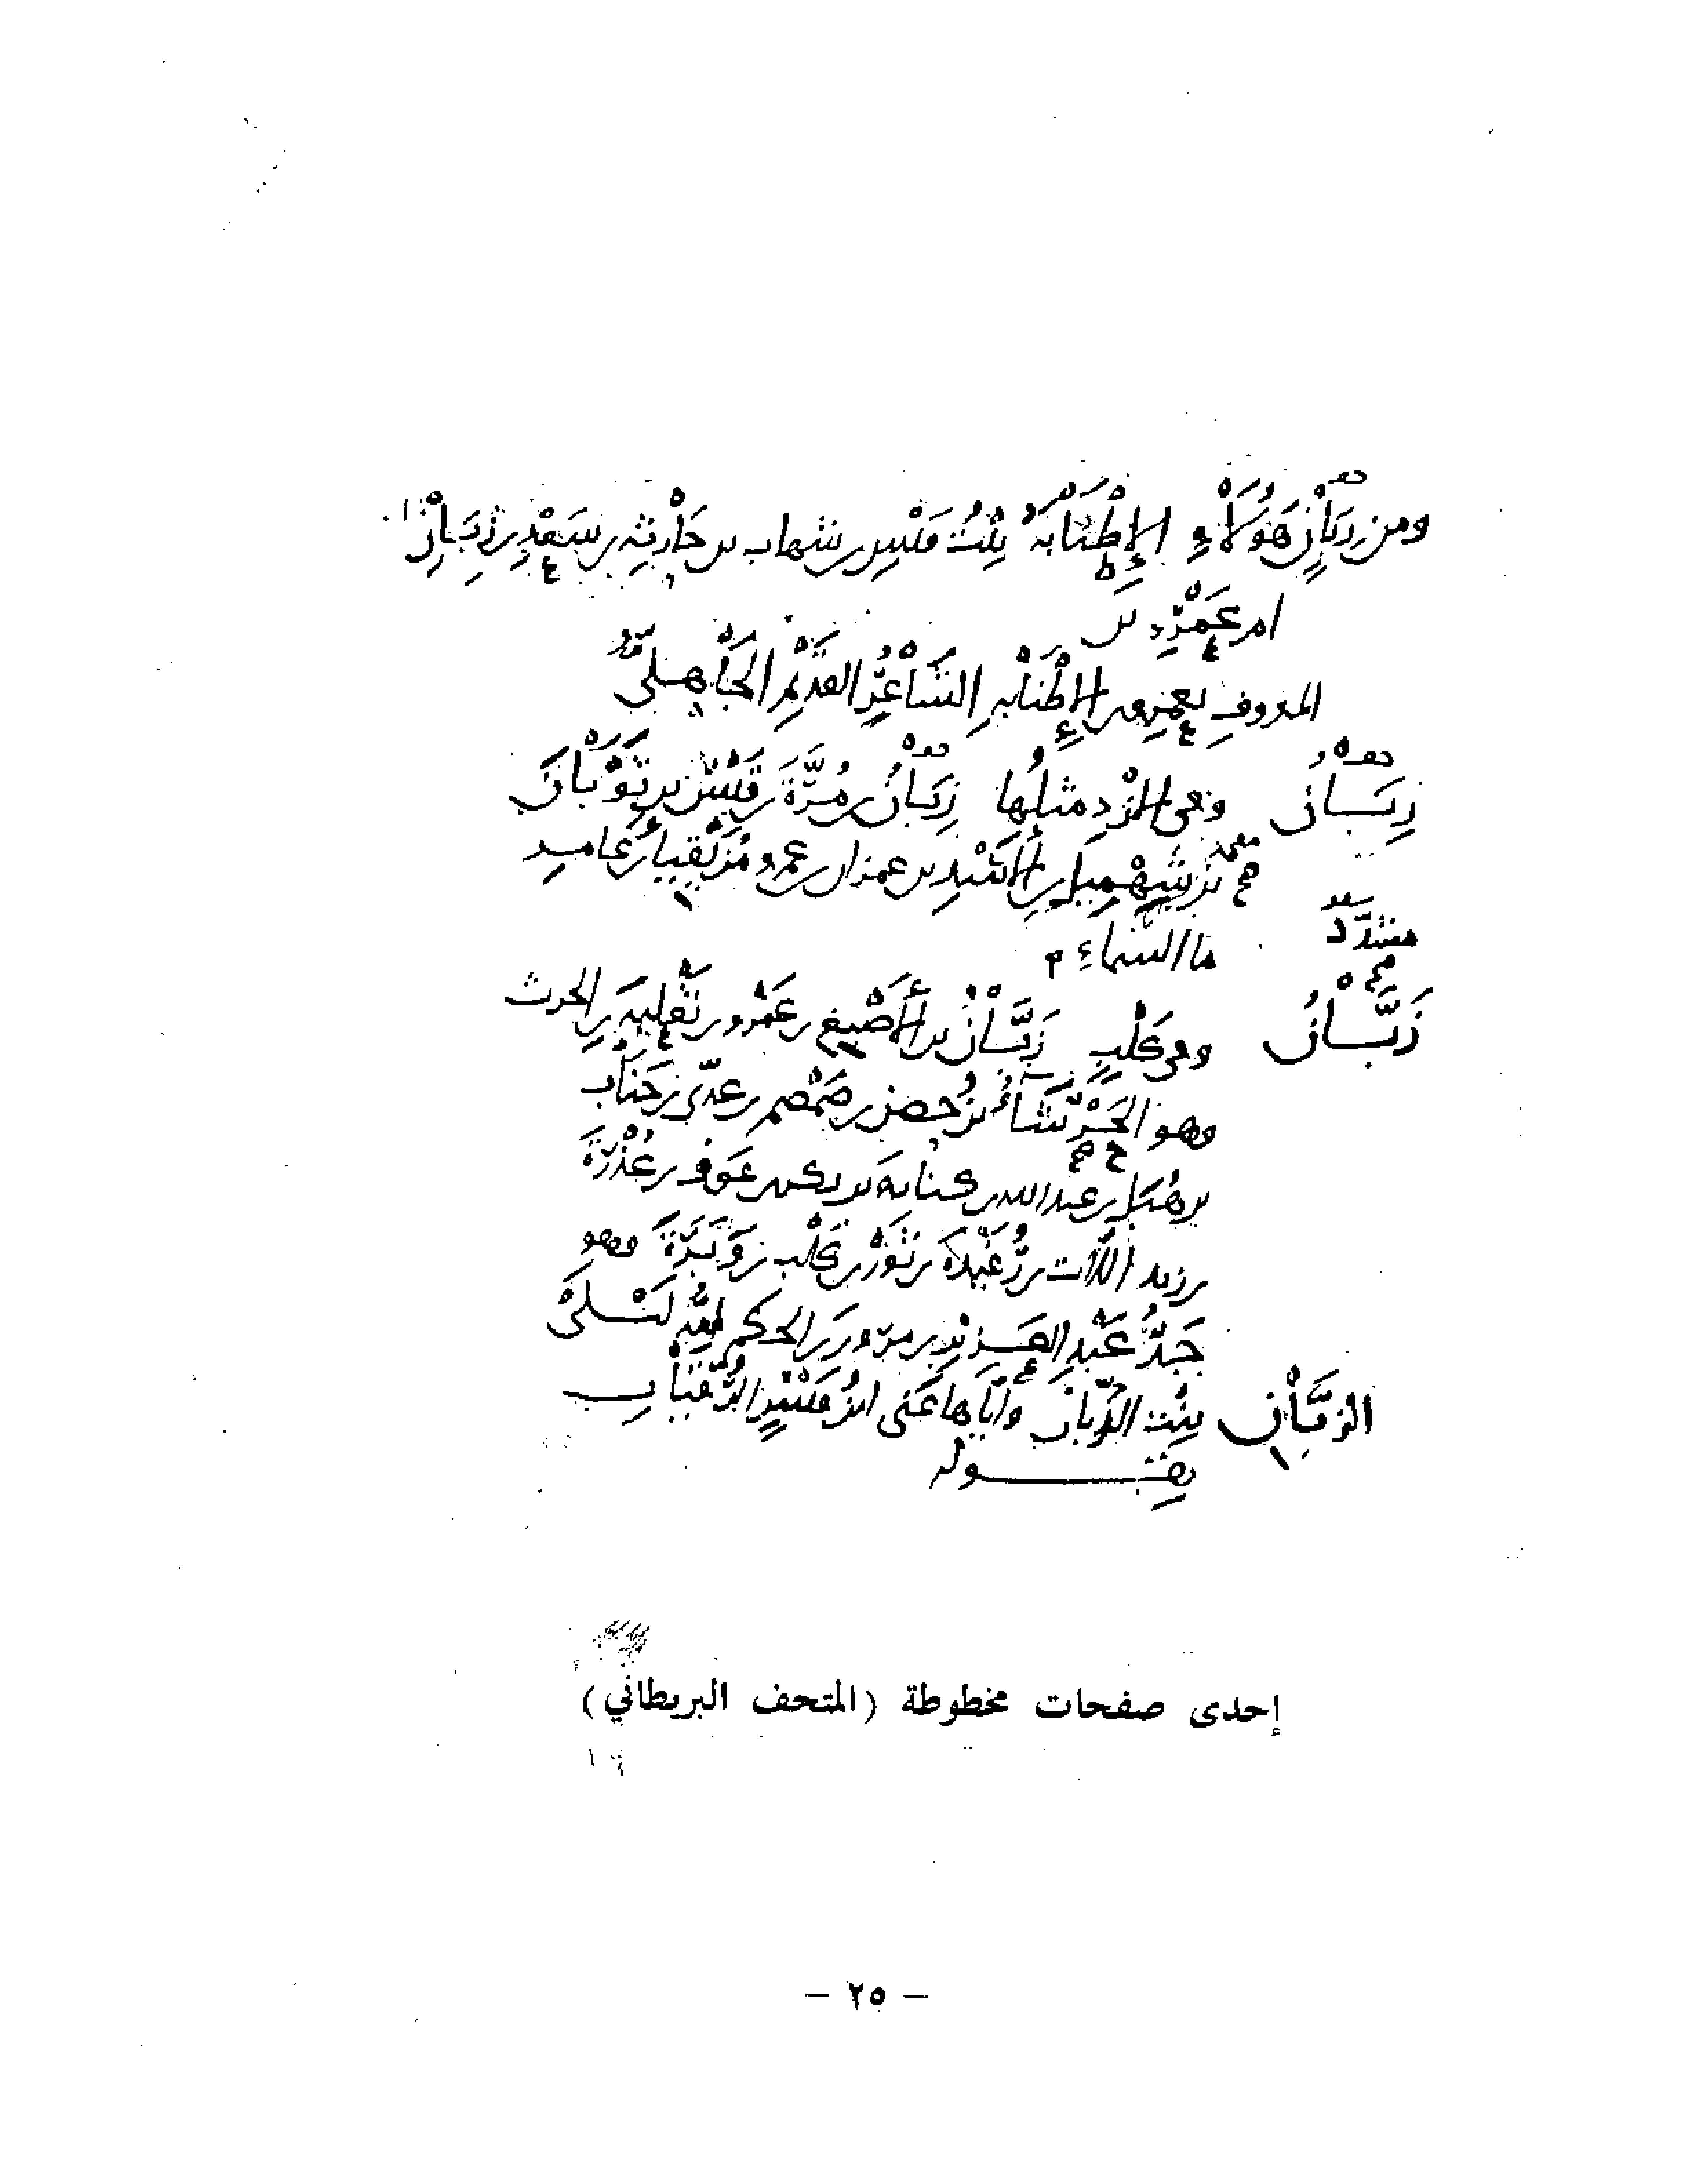 ومن زبان هؤلاء الإطنابة بنت قيس بن شهاب بن حارثة بن سعد بن زبان
ام عمرو بن
المعروف بعمرو بن الإطنابة الشاعر القديم الجاهلي
زبان وفى الازد مثلها زبان بن مرة بن قيس بن ثوبان
بن شهميل بن الأسد بن عمران بن عمرو مزيقياء بن عامر
مشدد ماء السماء
زَبَّان وفى كلب زَبَّان بن الأصبغ بن عمرو بن ثعلبة بن الحرث
وهو الحَرْشَاء بن حصن بن ضمضم بن عدي بن جناب
بن هبل بن عبد الله بن كنانة بن بكر بن عوف بن عُذْرَة
بن زيد اللات بن رُفَيْدَة بن ثَوْر بن كَلْب بن وَبَرَة وهو
جَدُّ عَبْدِ العزيز بن مروان بن الحكم لأمه لَيْلَى
الزبان بنت الزبان وإياها عَنَى ابن قيس الرقيات
بقوله
إحدى صفحات مخطوطة (المتحف البريطاني)
– ٢٥ –